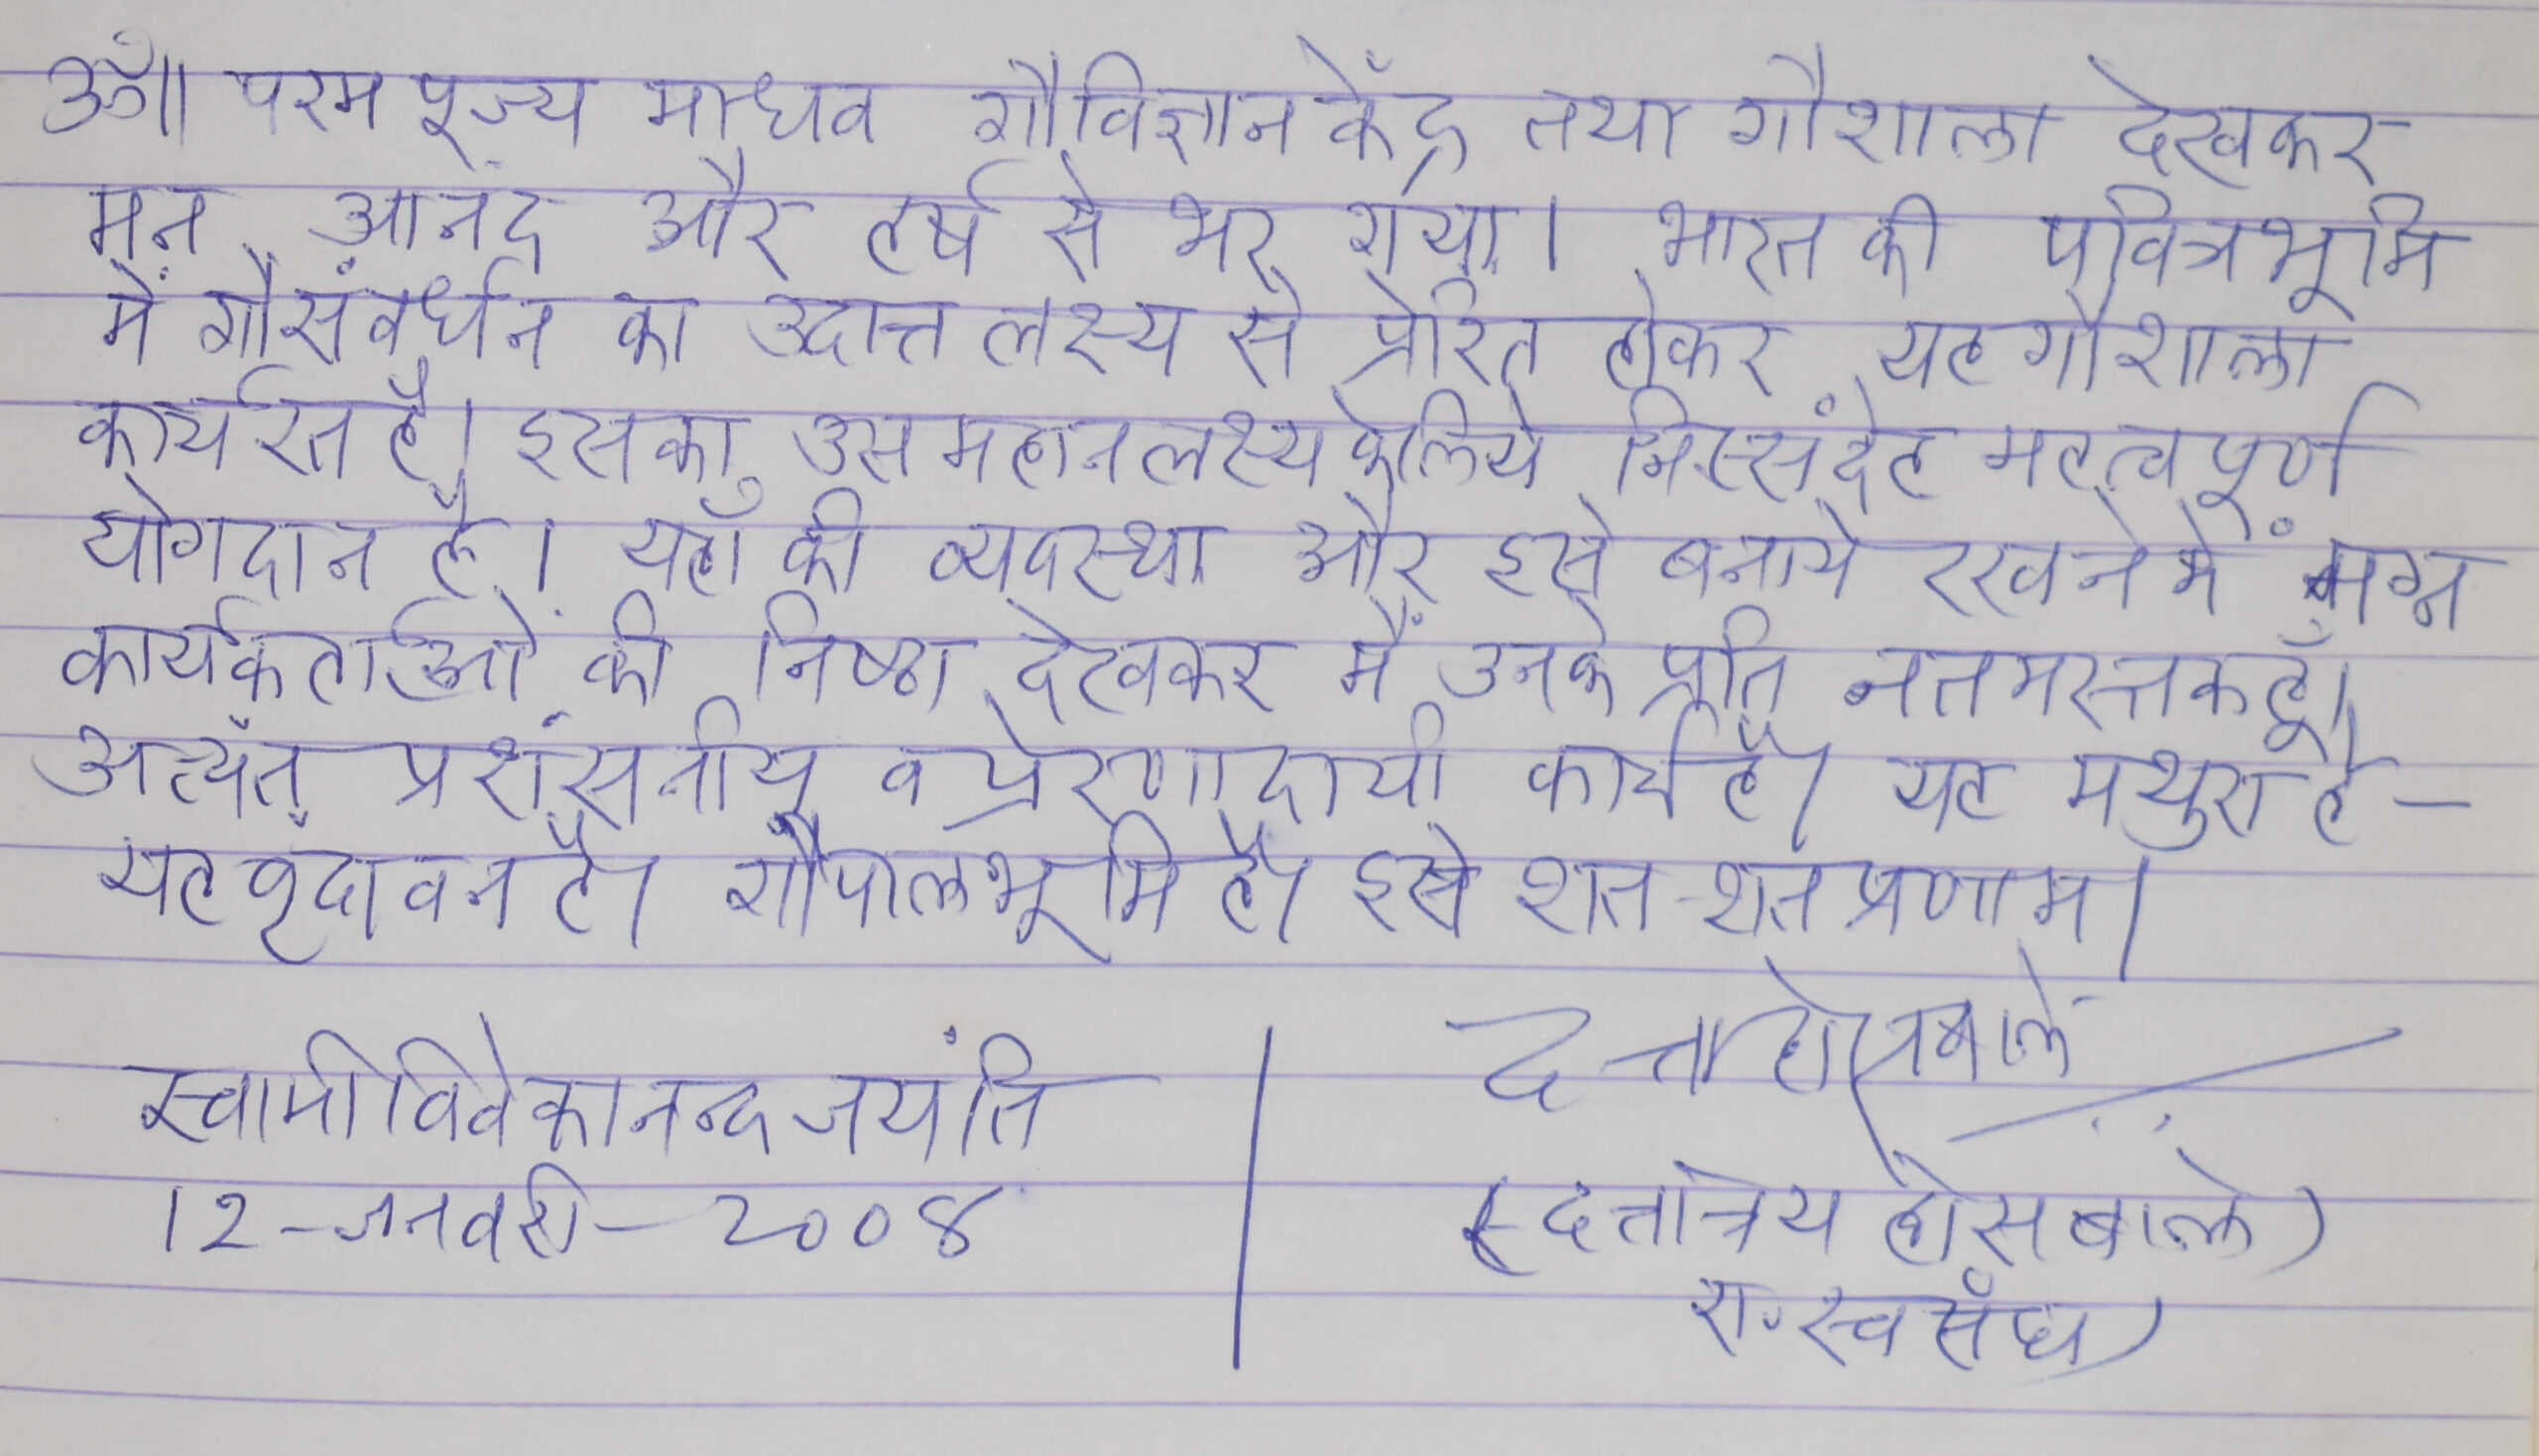 ॐ॥ परम पूज्य माधव गौविज्ञान केंद्र तथा गौशाला देखकर
मन आनंद और हर्ष से भर गया। भारत की पवित्रभूमि
में गौसंवर्धन का उदात्त लक्ष्य से प्रेरित होकर यह गौशाला
कार्यरत है। इसका उस महान लक्ष्य केलिये निस्संदेह महत्वपूर्ण
योगदान है। यहाँ की व्यवस्था और इसे बनाये रखने में मग्न
कार्यकर्ताओं की निष्ठा देखकर मैं उनके प्रति नतमस्तक हूँ।
अत्यंत प्रशंसनीय व प्रेरणादायी कार्य है। यह मथुरा है –
यह वृंदावन है। गौपालभूमि है। इसे शत-शत प्रणाम।
दत्ता होसबाले
स्वामी विवेकानन्द जयंति
12-जनवरी-2008
(दत्तात्रेय होसबाले)
रा. स्व संघ)